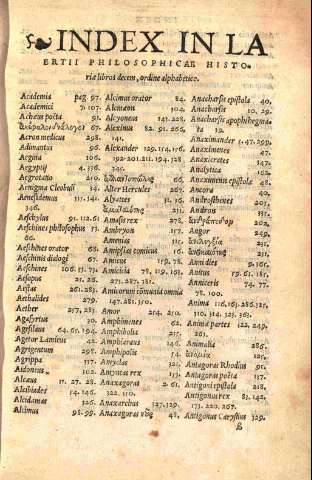 INDEX IN LA
ERTII PHILOSOPHICAE HISTO
riæ libros decem, ordine alphabetico.
Academia pag. 97.
Academici 7. 107.
Achæus poëta 91.
67.
Acron medicus 298.
Adimantus 96.
Aegina 106.
Aegyptij 4. 336.
Aegrotano 210.
Aenigma Cleobuli 34.
Aenesidemus 111. 141.
346.
Aeschylus 91. 112. 61
Aeschines philosophus 73.
66.
Aeschines orator 68.
Aeschinis dialogi 67.
Aeschines 106. 73. 71.
Aesopus 21. 26.
Aestas 261. 281.
Aethalides 279.
Aether 257. 281.
Agasyrtus 30.
Agesilaus 64. 65. 194.
Agetor Lamieus 42.
Agrigentum 298.
Agrippa 337.
Aidoneus 302.
Alcæus 17. 27. 28.
Alcibiades 14. 146.
Alcidamas 326.
Alcimus 98. 99.
Alcimus orator 84.
Alcmæon 304.
Alcyoneus 141. 228.
Aleximus 82. 91. 266.
Alexander 129. 154. 176.
192. 201. 211. 194. 328
341.
66.
Alter Hercules 267.
Alyattes 11. 16.
211.
Amasis rex 278.
Ambryon 157.
Amenias 311.
Amipsias comicus 16.
Amicus 159. 78.
Amicicia 78. 119. 163.
271. 287. 381.
Amicorum cōmunia omnia
147. 281. 350.
Amor 214. 210.
Amphimenes 62.
Amphicolia 215.
Amphiaraus 146.
Amphipolis 54.
Amyclas 321.
Amyntas rex 153.
Anaxagoras 2. 61.
322. 110.
Anaxarchus 127. 329.
Anaxagoras νοῦς 48.
Anacharsis epistola 40.
Anacharsis 10. 29.
Anacharsis apophthegma
ta 39.
Anaximander 1. 47. 299.
Anaximenes 47.
Anaxicrates 347.
Analytica 162.
Anaximenis epistola 48.
Ancora 40.
Androsthenes 203.
Andron 331.
202.
Angor 249.
251.
231.
Annicides 9. 161.
Anitus 59. 61. 187.
Anniceris 74. 77.
78. 100.
Anima 116. 163. 286. 325.
310. 314. 323. 361.
Animæ partes 122. 249.
261.
Animalia 286.
125.
Antagoras Rhodius 91.
Antagoras poëta 137.
Antigoni epistola 218.
Antigonus rex 83. 142.
173. 220. 267.
Antigonus Carystius 329.